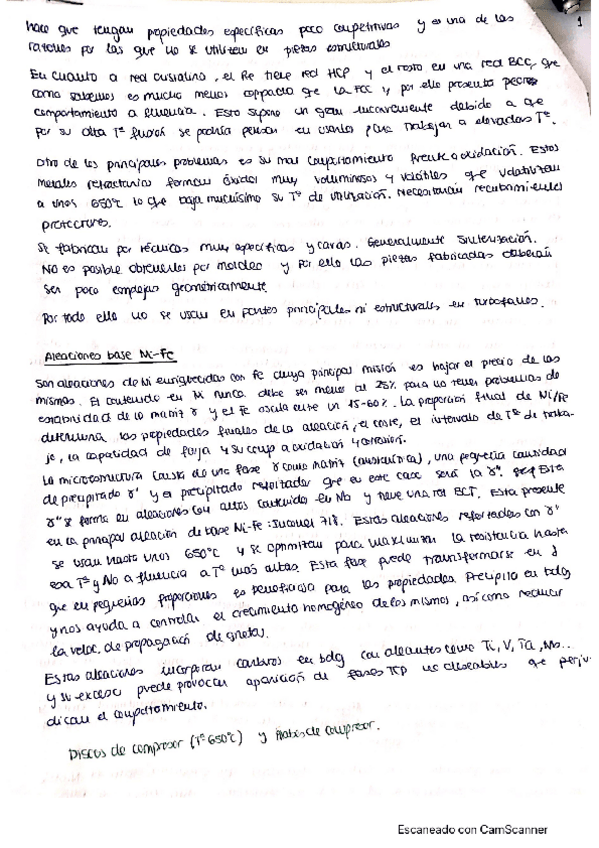 hace que tengan propiedades específicas poco competitivas y es una de las
razones por las que no se utilicen en piezas estructurales
1
En cuanto a red cristalina, el Re tiene red HCP y el resto en una red BCC, que
como sabemos es mucho menos compacta que la FCC y por ello presenta peores
comportamiento a fluencia. Esto supone un gran inconveniente debido a que
por su alta Tª fusión se podría pensar en usarlos para trabajar a elevadas Tª.
Otro de los principales problemas es su mal comportamiento frente a oxidación. Estos
metales refractarios forman óxidos muy voluminosos y volátiles que volatilizan
a unos 650ºC lo que baja muchísimo su Tª de utilización. Necesitarían recubrimientos
protectores.
Se fabrican por técnicas muy específicas y caras. Generalmente sinterización.
No es posible obtenerlos por moldeo y por ello las piezas fabricadas deberán
ser poco complejas geométricamente.
Por todo ello no se usan en partes principales ni estructurales en turbofanes.
Aleaciones base Ni-Fe
Son aleaciones de Ni enriquecidas con Fe cuya principal misión es bajar el precio de las
mismas. El contenido en Ni nunca debe ser menor al 25% para no tener problemas de
estabilidad de la matriz γ y el Fe oscila entre un 15-60%. La proporción final de Ni/Fe
determina las propiedades finales de la aleación, el coste, el intervalo de Tª de traba-
jo, la capacidad de forja y su comp a oxidación y corrosión.
La microestructura consta de una fase γ como matriz (austenítica), una pequeña cantidad
de precipitado γ' y el precipitado reforzador que en este caso será la γ''. Esta
γ'' se forma en aleaciones con altos contenidos en Nb y tiene una red BCT. Esta presente
en la principal aleación de base Ni-Fe: Inconel 718. Estas aleaciones reforzadas con γ''
se usan hasta unos 650ºC y se optimizan para maximizar la resistencia hasta
esa Tª y No a fluencia a Tª más altas. Esta fase puede transformarse en δ
que en pequeñas proporciones es beneficiosa para las propiedades. Precipita en bdg
y nos ayuda a controlar el crecimiento homogéneo de los mismos, así como reducir
la veloc. de propagación de grietas.
Estas aleaciones incorporan carburos en bdg con aleantes como Ti, V, Ta, Mo..
y su exceso puede provocar aparición de fases TCP no deseables que perju-
dican el comportamiento.
Discos de compresor (Tª 650ºC) y álabes de compresor.
Escaneado con CamScanner